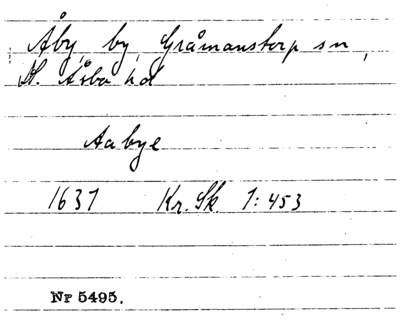 Åby, by, Gråmanstorp sn,
N. Åsbo hd
Aabye
1637 Kr. Sk. 1:453
Nr 5495.